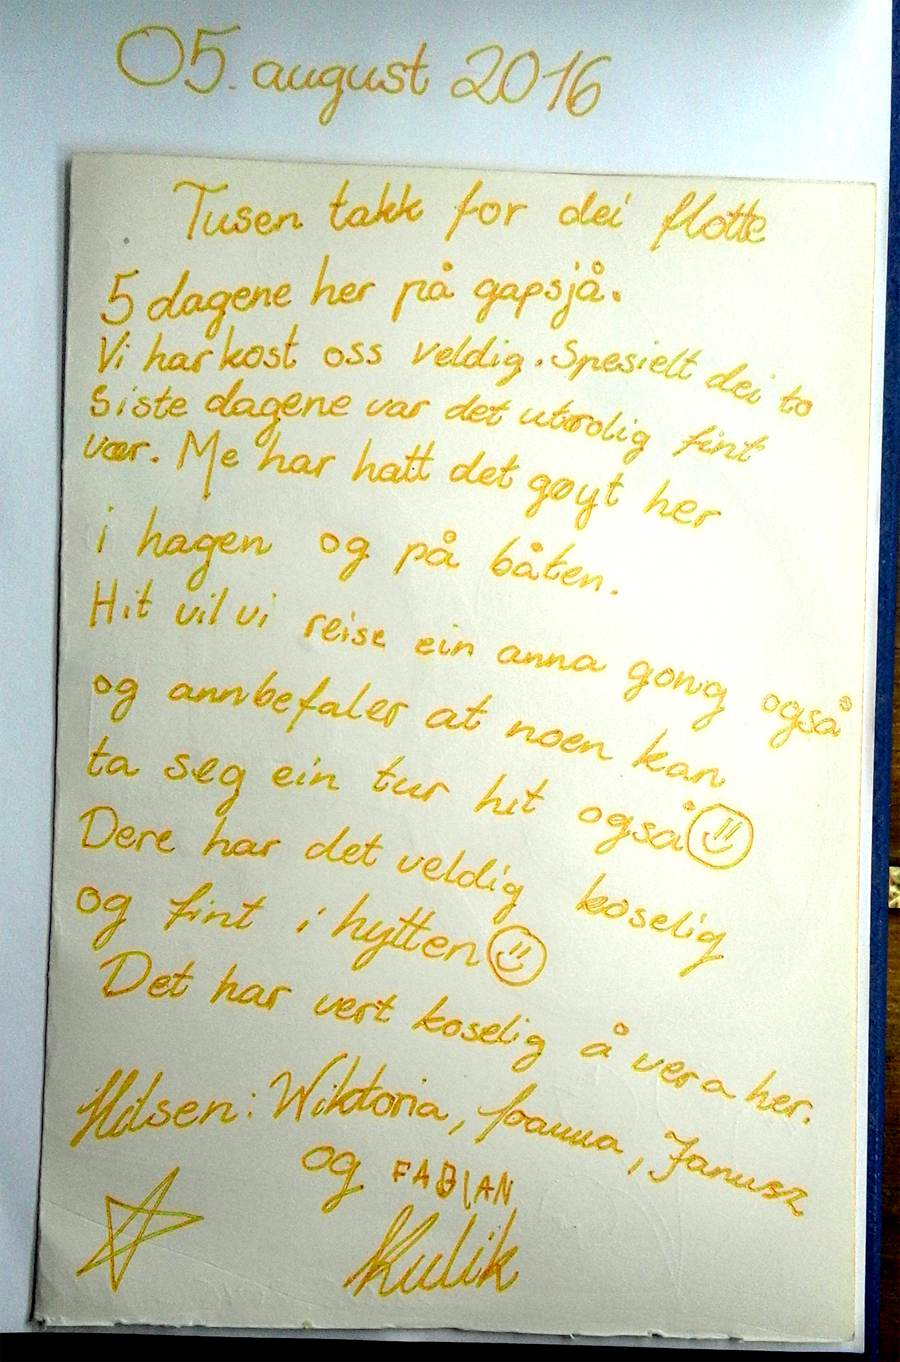 05. august 2016
Tusen takk for dei flotte
5 dagene her på gapsjå.
Vi har kost oss veldig. Spesielt dei to
siste dagene var det utrolig fint
vær. Me har hatt det gøyt her
i hagen og på båten.
Hit vil vi reise ein anna gong også
og annbefaler at noen kan
ta seg ein tur hit også
Dere har det veldig koselig
og fint i hytten
Det har vert koselig å vera her.
Hilsen: Wiktoria, Joanna, Janusz
og FABIAN
Kulik